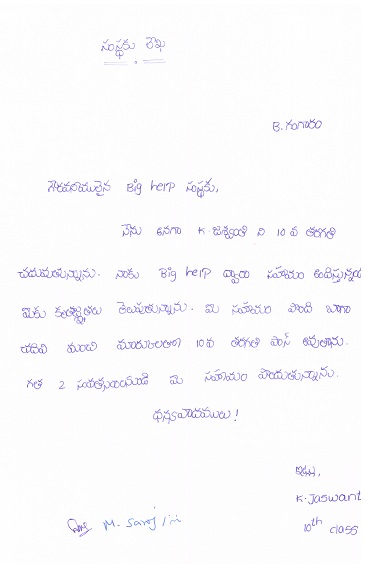 సంస్థకు లేఖ
B. గంగారం
గౌరవనీయులైన Big help సంస్థకు,
నేను అనగా K జశ్వంత్ ని 10 వ తరగతి
చదువుతున్నాను. నాకు Big help ద్వారా సహాయం అందిస్తున్న
మీకు కృతజ్ఞతలు తెలుపుతున్నాను. మీ సహాయం పొంది బాగా
చదివి మంచి మార్కులతో 10వ తరగతి పాస్ అవుతాను.
గత 2 సంవత్సరాలనుండి మీ సహాయం పొందుతున్నాను.
ధన్యవాదములు!
ఇట్లు,
K. Jaswant
M. Sarojini 10th class